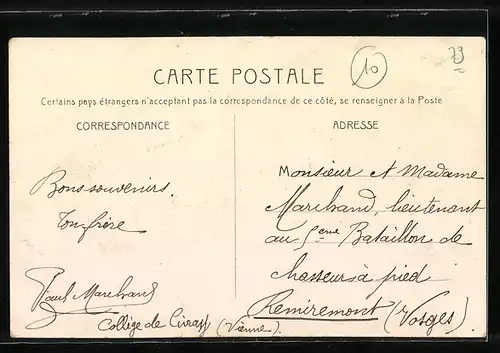 79
10
CARTE POSTALE
Certains pays étrangers n'acceptant pas la correspondance de ce côté, se renseigner à la Poste
CORRESPONDANCE
Bons souvenirs.
Ton frère
Paul Marchand
Collège de Civray (Vienne).
ADRESSE
Monsieur et Madame
Marchand, lieutenant
au 5ème Bataillon de
chasseurs à pied
Remiremont (Vosges)